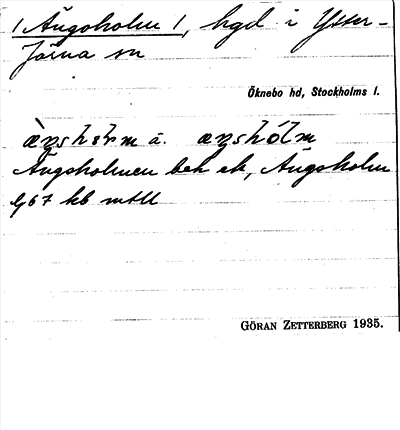 ( Ängsholm ), hgd i Ytter-
Järna sn
Öknebo hd, Stockholms l.
ä̀ŋshorm ä. æŋshólm
Ängsholmen bek ek, Ängsholm
kb mtll
GÖRAN ZETTERBERG 1935.